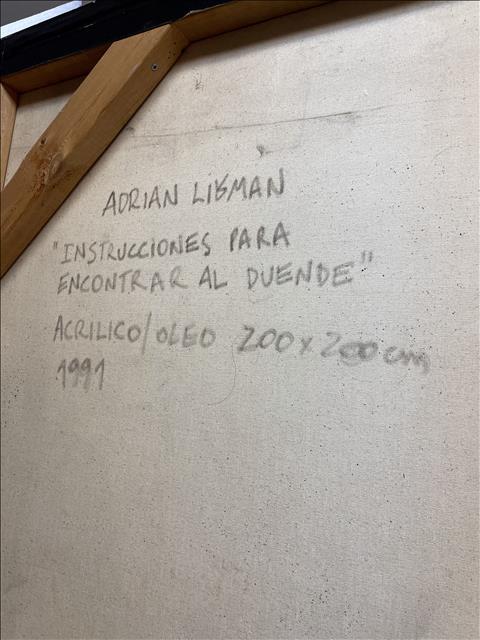 ADRIAN LIBMAN
"INSTRUCCIONES PARA
ENCONTRAR AL DUENDE"
ACRILICO/OLEO 200 x 200 cm
1991